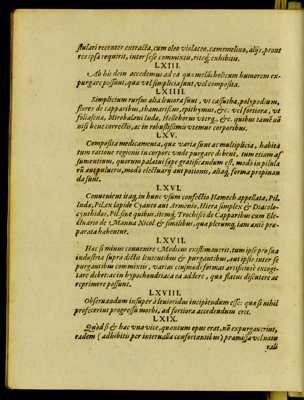 ſtulari recenter extracta, cum oleo violaceo, camemelino, alijs, prout
res ipſa requirit, inter ſeſe commixtis, ritèq; exhibitis.
LXIII.
Ab his dein accedemus ad ea quæ melãcholicum humorem ex-
purgare poſſunt, quæ vel ſimplicia ſunt, vel compoſita.
LXIIII.
Simplicium rurſus alia leuiora ſunt, vt caſſutha, polypodium,
flores de capparibus, thamariſcus, epithymus, &c. vel fortiora, vt
folia ſena, Mirobalani Inda, Helleborus vterq;, &c. quibus tamẽ nõ
niſi bene correctis, ac in robuſtiſſimis vtemur corporibus.
LXV.
Compoſita medicamenta, quæ varia ſunt ac multiplicia, habita
tum ratione regionis in corpore unde purgare debent, tum etiam aſ-
ſumentium, quorum palatus ſæpe gratificandum eſt, modò in pilula-
rũ modò electuarij aut potionis, aliaq; forma propinan-
da ſunt.
LXVI.
Conueniet itaq; in hunc vſum confectio Hamech appellata, Pil.
Indæ, Pil. ex lapide Cyaneo aut Armenio, Hiera ſimplex & Diacolo-
cynthidos, Pil. ſine quibus, item q; Trochiſci de Capparibus cum Ele-
ctuario de Manna Nicol & ſimilibus, quæ plerumq; iam antè præ-
parata habentur.
LXVII.
Hac ſi minus conuenire Medicus exiſtimauerit, tum ipſe pro ſua
induſtria ſupra dicta lenientibus & purgantibus, aut ipſis inter ſe
purgantibus commixtis, varias cuiuſmodi formas artificiſè excogi-
tare debet: ac in hypochondriaca ea addere, quæ flatus diſcutere ac
reprimere poſſunt.
LXVIII.
Obſeruandum inſuper à leuioribus incipiendum eſſe: quæ ſi nihil
profecerint progreſſu morbi, ad fortiora accedendum erit.
LXIX.
Quòd ſi & hac vna vice, quantum opus erat, nõ expurgauerint,
eadem (adhibitis per interualla confortantibus) præmiſſa vel natu
rali